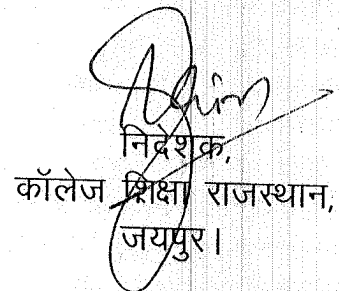 निदेशक,
कॉलेज शिक्षा राजस्थान,
जयपुर।